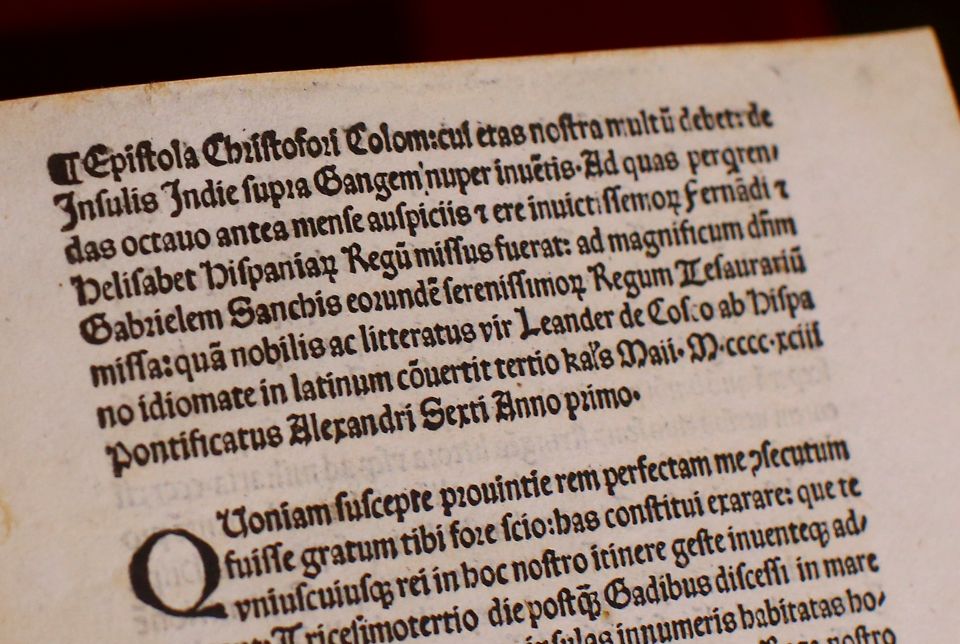 ¶ Epistola Christofori Colom: cui etas nostra multū debet: de
Insulis Indie supra Gangem nuper inuētis. Ad quas perqren/
das octauo antea mense auspiciis ⁊ ere inuictissemoꝝ Fernādi ⁊
Helisabet Hispaniaꝝ Regū missus fuerat: ad magnificum dñm
Gabrielem Sanchis eorundē serenissimoꝝ Regum Tesaurariū
missa: quā nobilis ac litteratus vir Leander de Cosco ab Hispa
no idiomate in latinum cōuertit tertio kals Maii. M.cccc.xciii
Pontificatus Alexandri Sexti Anno primo.
QUoniam suscepte prouintie rem perfectam me ꝯsecutum
fuisse gratum tibi fore scio: has constitui exarare: que te
vniuscuiusqꝫ rei in hoc nostro itinere geste inuenteqꝫ ad/
Tricesimotertio die postqꝫ̄ Gadibus discessi in mare
insulas innumeris habitatas ho/
nostro